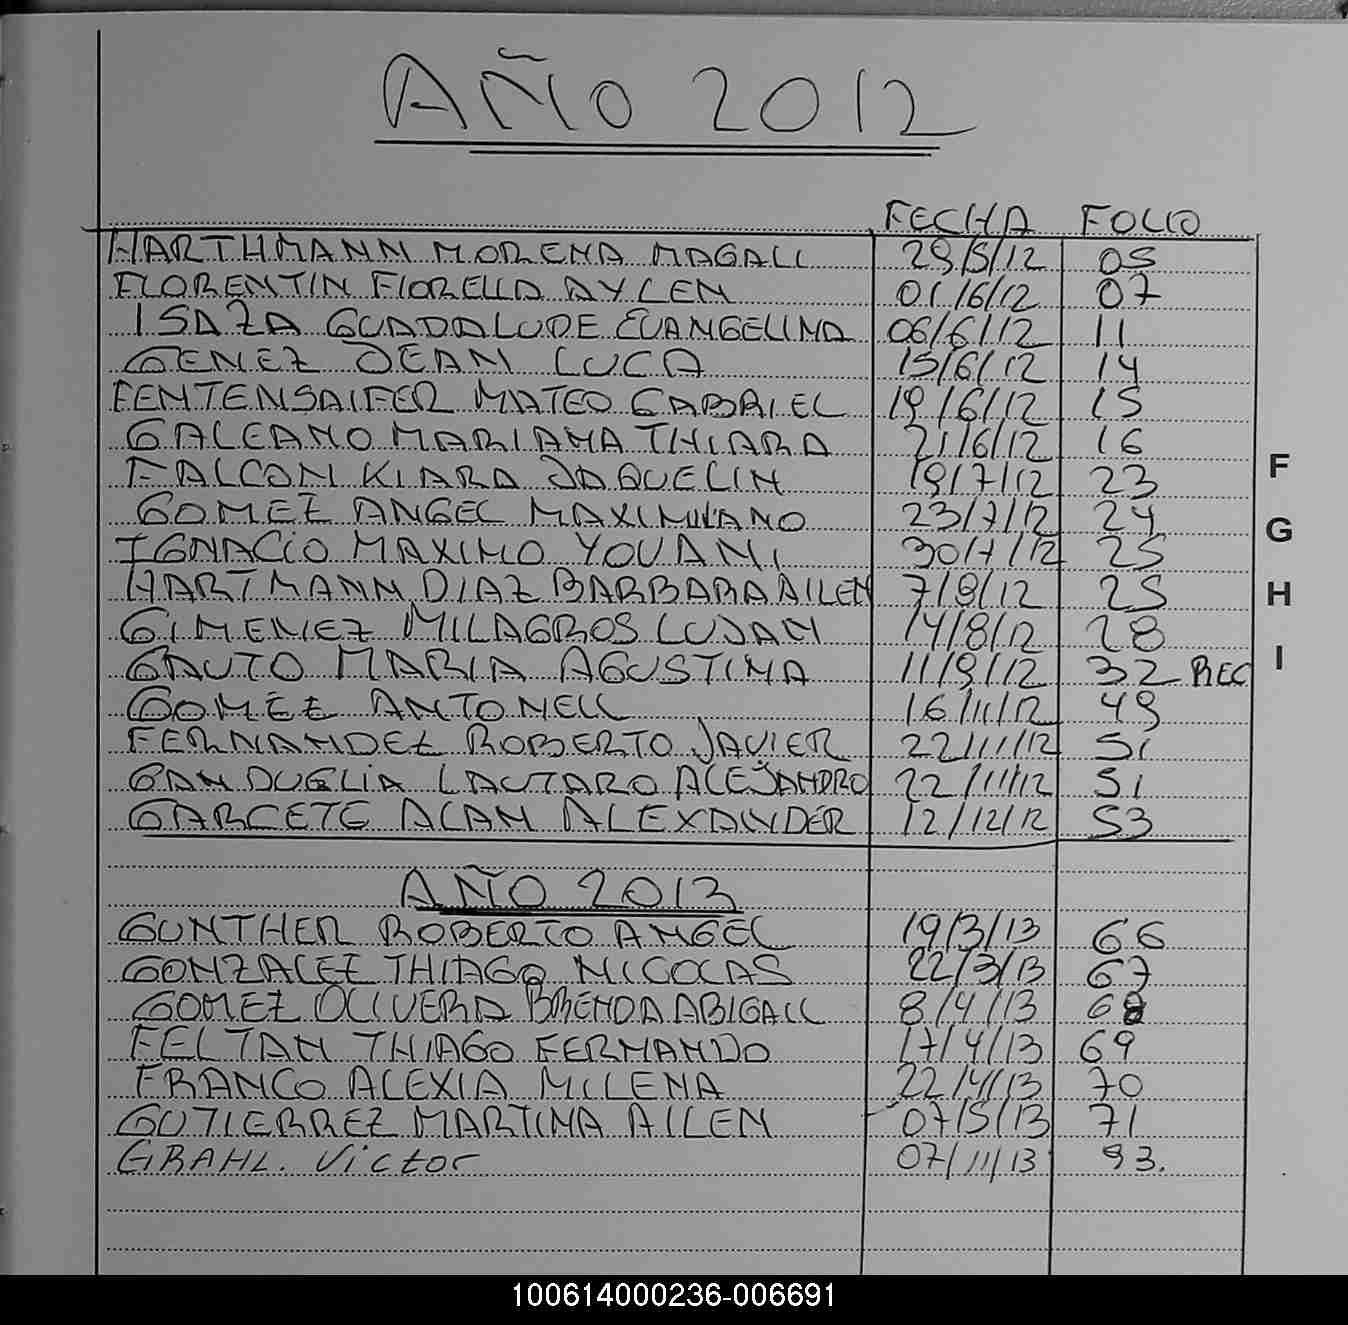 AÑO 2012
FECHA FOLIO
HARTHMANN MORENA MAGALI 29/5/12 05
FLORENTIN FIORELLA AYLEN 01/6/12 07
ISAZA GUADALUPE EVANGELINA 06/6/12 11
GENEZ JEAN LUCA 15/6/12 14
FENTENSAIFER MATEO GABRIEL 19/6/12 15
GALEANO MARIANA THIARA 21/6/12 16
FALCON KIARA JAQUELIN 19/7/12 23
GOMEZ ANGEL MAXIMILIANO 23/7/12 24
IGNACIO MAXIMO YOVANI 30/7/12 25
HARTMANN DIAZ BARBARA AILEN 7/8/12 25
GIMENEZ MILAGROS LUJAN 14/8/12 28
GAUTO MARIA AGUSTINA 11/9/12 32 REC
GOMEZ ANTONELL 16/11/12 49
FERNANDEZ ROBERTO JAVIER 22/11/12 51
GANDUGLIA LAUTARO ALEJANDRO 22/11/12 51
GARCETE ALAN ALEXANDER 12/12/12 53
AÑO 2013
GUNTHER ROBERTO ANGEL 19/3/13 66
GONZALEZ THIAGO NICOLAS 22/3/13 67
GOMEZ OLIVERA BRENDA ABIGAIL 8/4/13 68
FELTAN THIAGO FERNANDO 17/4/13 69
FRANCO ALEXIA MILENA 22/4/13 70
GUTIERREZ MARTINA AILEN 07/5/13 71
GRAHL. Victor 07/11/13 93.
F
G
H
I
100614000236-006691